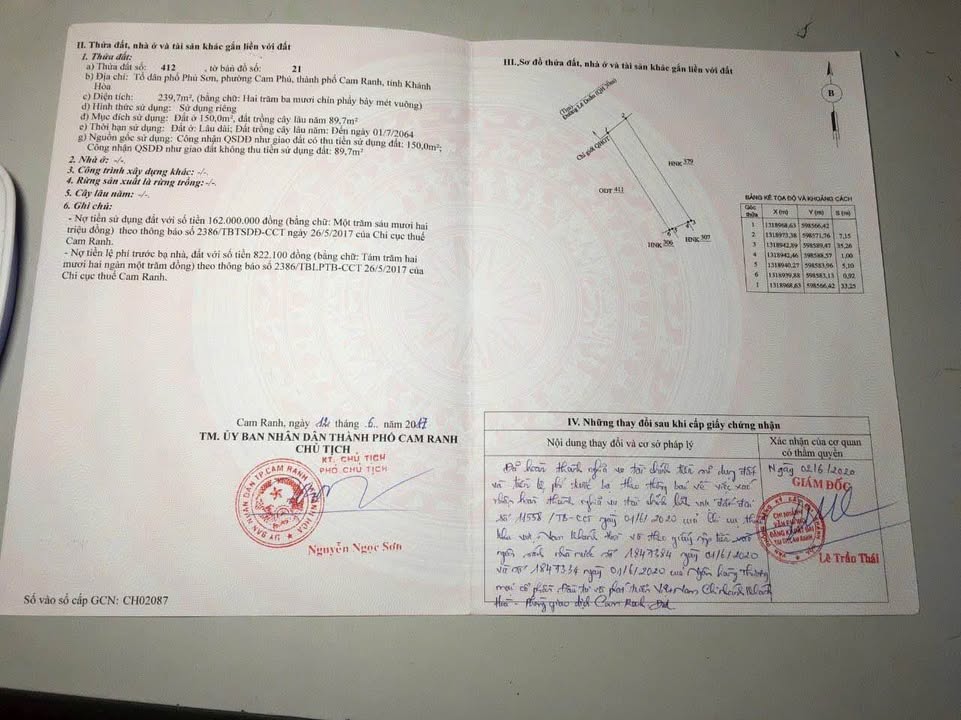 II. Thửa đất, nhà ở và tài sản khác gắn liền với đất
1. Thửa đất:
a) Thửa đất số: 412 , tờ bản đồ số: 21
b) Địa chỉ: Tổ dân phố Phú Sơn, phường Cam Phú, thành phố Cam Ranh, tỉnh Khánh
Hòa
c) Diện tích: 239,7m², (bằng chữ: Hai trăm ba mươi chín phẩy bảy mét vuông)
d) Hình thức sử dụng: Sử dụng riêng
đ) Mục đích sử dụng: Đất ở 150,0m², đất trồng cây lâu năm 89,7m²
e) Thời hạn sử dụng: Đất ở: Lâu dài; Đất trồng cây lâu năm: Đến ngày 01/7/2064
g) Nguồn gốc sử dụng: Công nhận QSDĐ như giao đất có thu tiền sử dụng đất: 150,0m²;
Công nhận QSDĐ như giao đất không thu tiền sử dụng đất: 89,7m²
2. Nhà ở: -/-.
3. Công trình xây dựng khác: -/-.
4. Rừng sản xuất là rừng trồng: -/-.
5. Cây lâu năm: -/-.
6. Ghi chú:
- Nợ tiền sử dụng đất với số tiền 162.000.000 đồng (bằng chữ: Một trăm sáu mươi hai
triệu đồng) theo thông báo số 2386/TBTSDĐ-CCT ngày 26/5/2017 của Chi cục thuế
Cam Ranh.
- Nợ tiền lệ phí trước bạ nhà, đất với số tiền 822.100 đồng (bằng chữ: Tám trăm hai
mươi hai ngàn một trăm đồng) theo thông báo số 2386/TBLPTB-CCT 26/5/2017 của
Chi cục thuế Cam Ranh.
Cam Ranh, ngày 12 tháng 6 năm 2017
TM. ỦY BAN NHÂN DÂN THÀNH PHỐ CAM RANH
CHỦ TỊCH
KT. CHỦ TỊCH
PHÓ CHỦ TỊCH
Nguyễn Ngọc Sơn
Số vào sổ cấp GCN: CH02087
III. Sơ đồ thửa đất, nhà ở và tài sản khác gắn liền với đất
B
Đường Lê Duẩn
Chỉ giới QHGT
HNK 379
ODT 411
HNK 306
HNK 307
BẢNG KÊ TỌA ĐỘ VÀ KHOẢNG CÁCH
Góc thửa X (m) Y (m) S (m)
1 1318968,63 598566,42
2 1318973,38 598571,76 7,15
3 1318942,89 598589,47 35,26
4 1318942,46 598588,57 1,00
5 1318940,27 598583,96 5,10
6 1318939,88 598583,13 0,92
1 1318968,63 598566,42 33,25
IV. Những thay đổi sau khi cấp giấy chứng nhận
Nội dung thay đổi và cơ sở pháp lý
Xác nhận của cơ quan
có thẩm quyền
Đã hoàn thành nghĩa vụ tài chính tiền sử dụng đất
và tiền lệ phí trước bạ theo thông báo về việc xác
nhận hoàn thành nghĩa vụ tài chính lĩnh vực đất đai
số 11558/TB-CCT ngày 01/6/2020 của Chi cục thuế
khu vực Nam Khánh Hòa và theo giấy nộp tiền vào
ngân sách nhà nước số 1847384 ngày 01/6/2020
và số 1847334 ngày 01/6/2020 của Ngân hàng thương
mại cổ phần Đầu tư và phát triển Việt Nam Chi nhánh Khánh
Hòa - Phòng giao dịch Cam Ranh
Ngày 02/6/2020
GIÁM ĐỐC
Lê Trần Thái